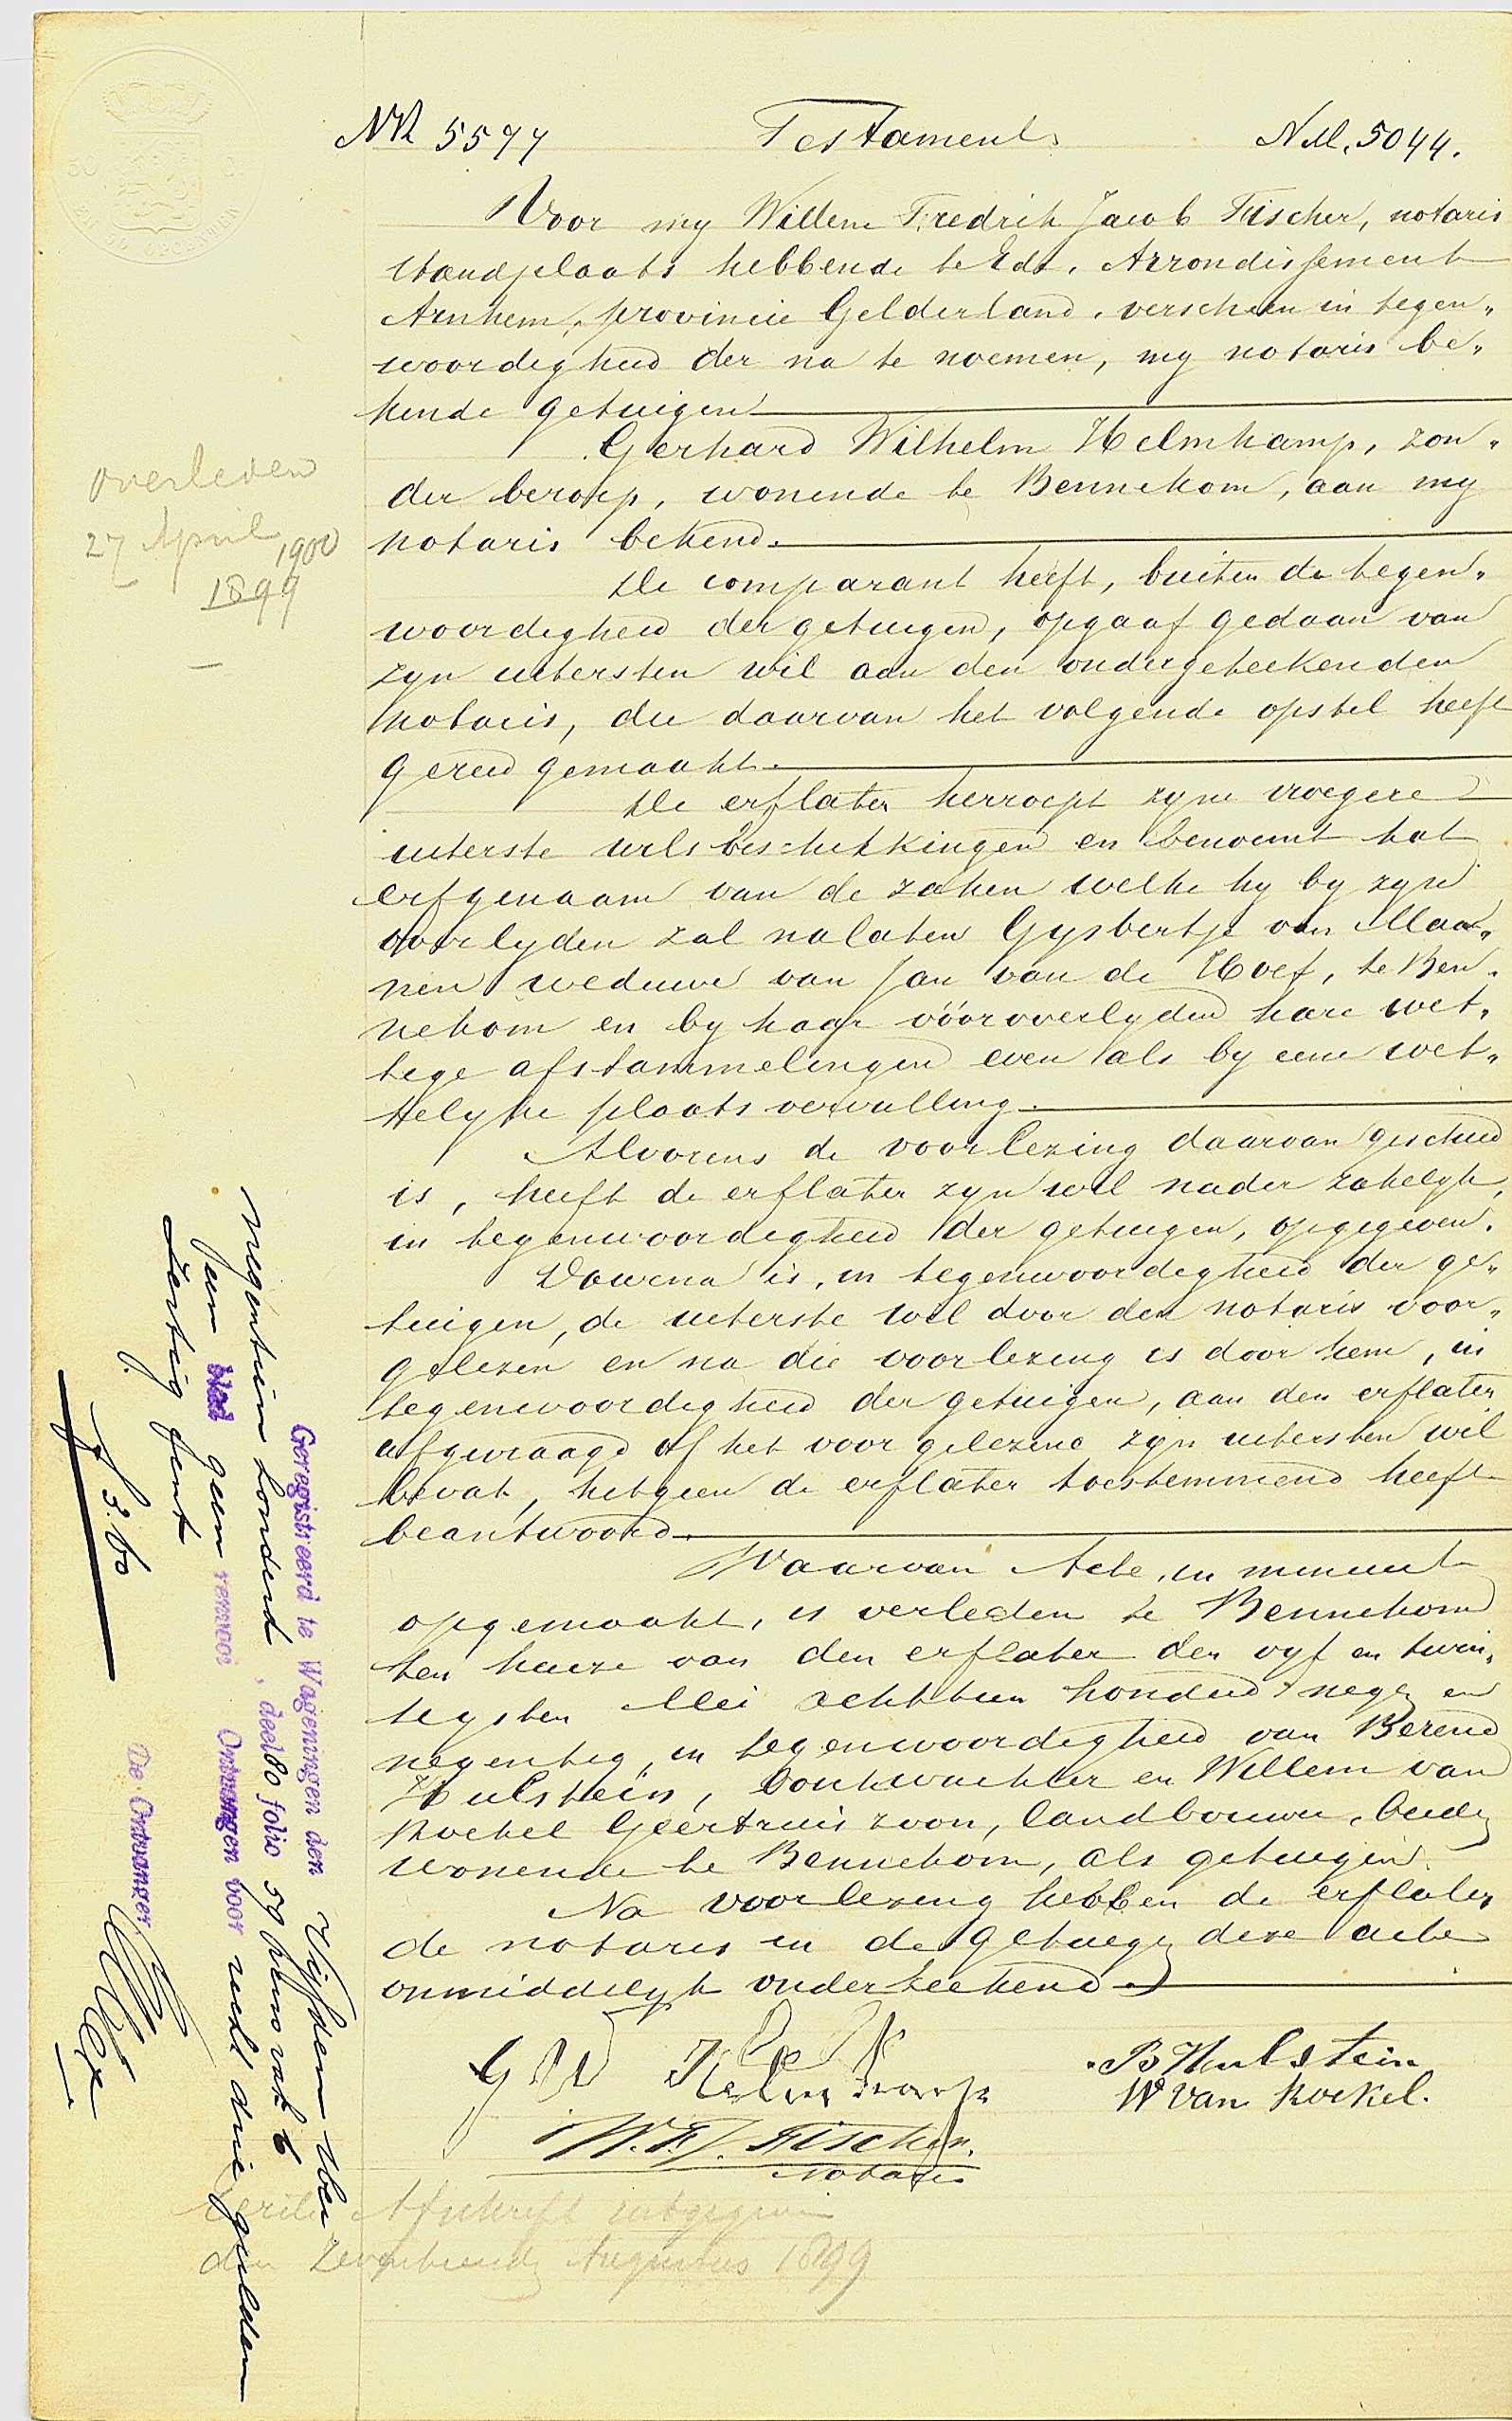 NR 5577 Testament. N M. 5044.
Voor my Willem Fredrik Jacob Fischer, notaris
standplaats hebbende te Ede, Arrondissement
Arnhem, provincie Gelderland, verscheen in tegen„
woordigheid der na te noemen, my notaris be„
kende getuigen
Gerhard Wilhelm Helmkamp, zon„
der beroep, wonende te Bennekom, aan my
notaris bekend.
De comparant heeft, buiten de tegen„
woordigheid der getuigen, opgaaf gedaan van
zyn uitersten wil aan den ondergeteekenden
notaris, die daarvan het volgende opstel heeft
gereed gemaakt.
De erflater herroept zyne vroegere
uiterste wilsbeschikkingen en benoemt tot
erfgenaam van de zaken welke hy by zyn
overlyden zal nalaten Gysbertje van Maa„
nen weduwe van Jan van de Hoef, te Ben„
nekom en by haar vóóroverlyden hare wet„
tige afstammelingen even als by eene wet„
telyke plaatsvervulling.
Alvorens de voorlezing daarvan geschied
is, heeft de erflater zyn wil nader zakelyk,
in tegenwoordigheid der getuigen, opgegeven.
Daarna is, in tegenwoordigheid der ge„
tuigen, de uiterste wil door den notaris voor„
gelezen en na die voorlezing is door hem, in
tegenwoordigheid der getuigen, aan den erflater
afgevraagd of het voorgelezene zyn uitersten wil
bevat, hetgeen de erflater toestemmend heeft
beantwoord.
Waarvan Acte, in minuut
opgemaakt, is verleden te Bennekom
ten huize van den erflater den vyf en twin„
tigsten Mei achttien honderd negen en
negentig, in tegenwoordigheid van Berend
Hulstein, boschwachter en Willem van
Roekel Geertruiszoon, landbouwer, beiden
wonende te Bennekom, als getuigen.
Na voorlezing hebben de erflater,
de notaris en de getuigen deze acte
onmiddelyk onderteekend.
G W Helmkamp
B Hulstein
W van Roekel.
W.F.J. Fischer.
notaris
Eerste Afschrift uitgegeven
den zeventienden Augustus 1899
overleden
27 April 1900
1899
Geregistreerd te Wageningen den Vijfden Mei
Negentien honderd, deel 80 folio 59 vak 6
een blad geen renvooi Ontvangen voor recht drie gulden
Zestig cent
f 3.60
De Ontvanger,